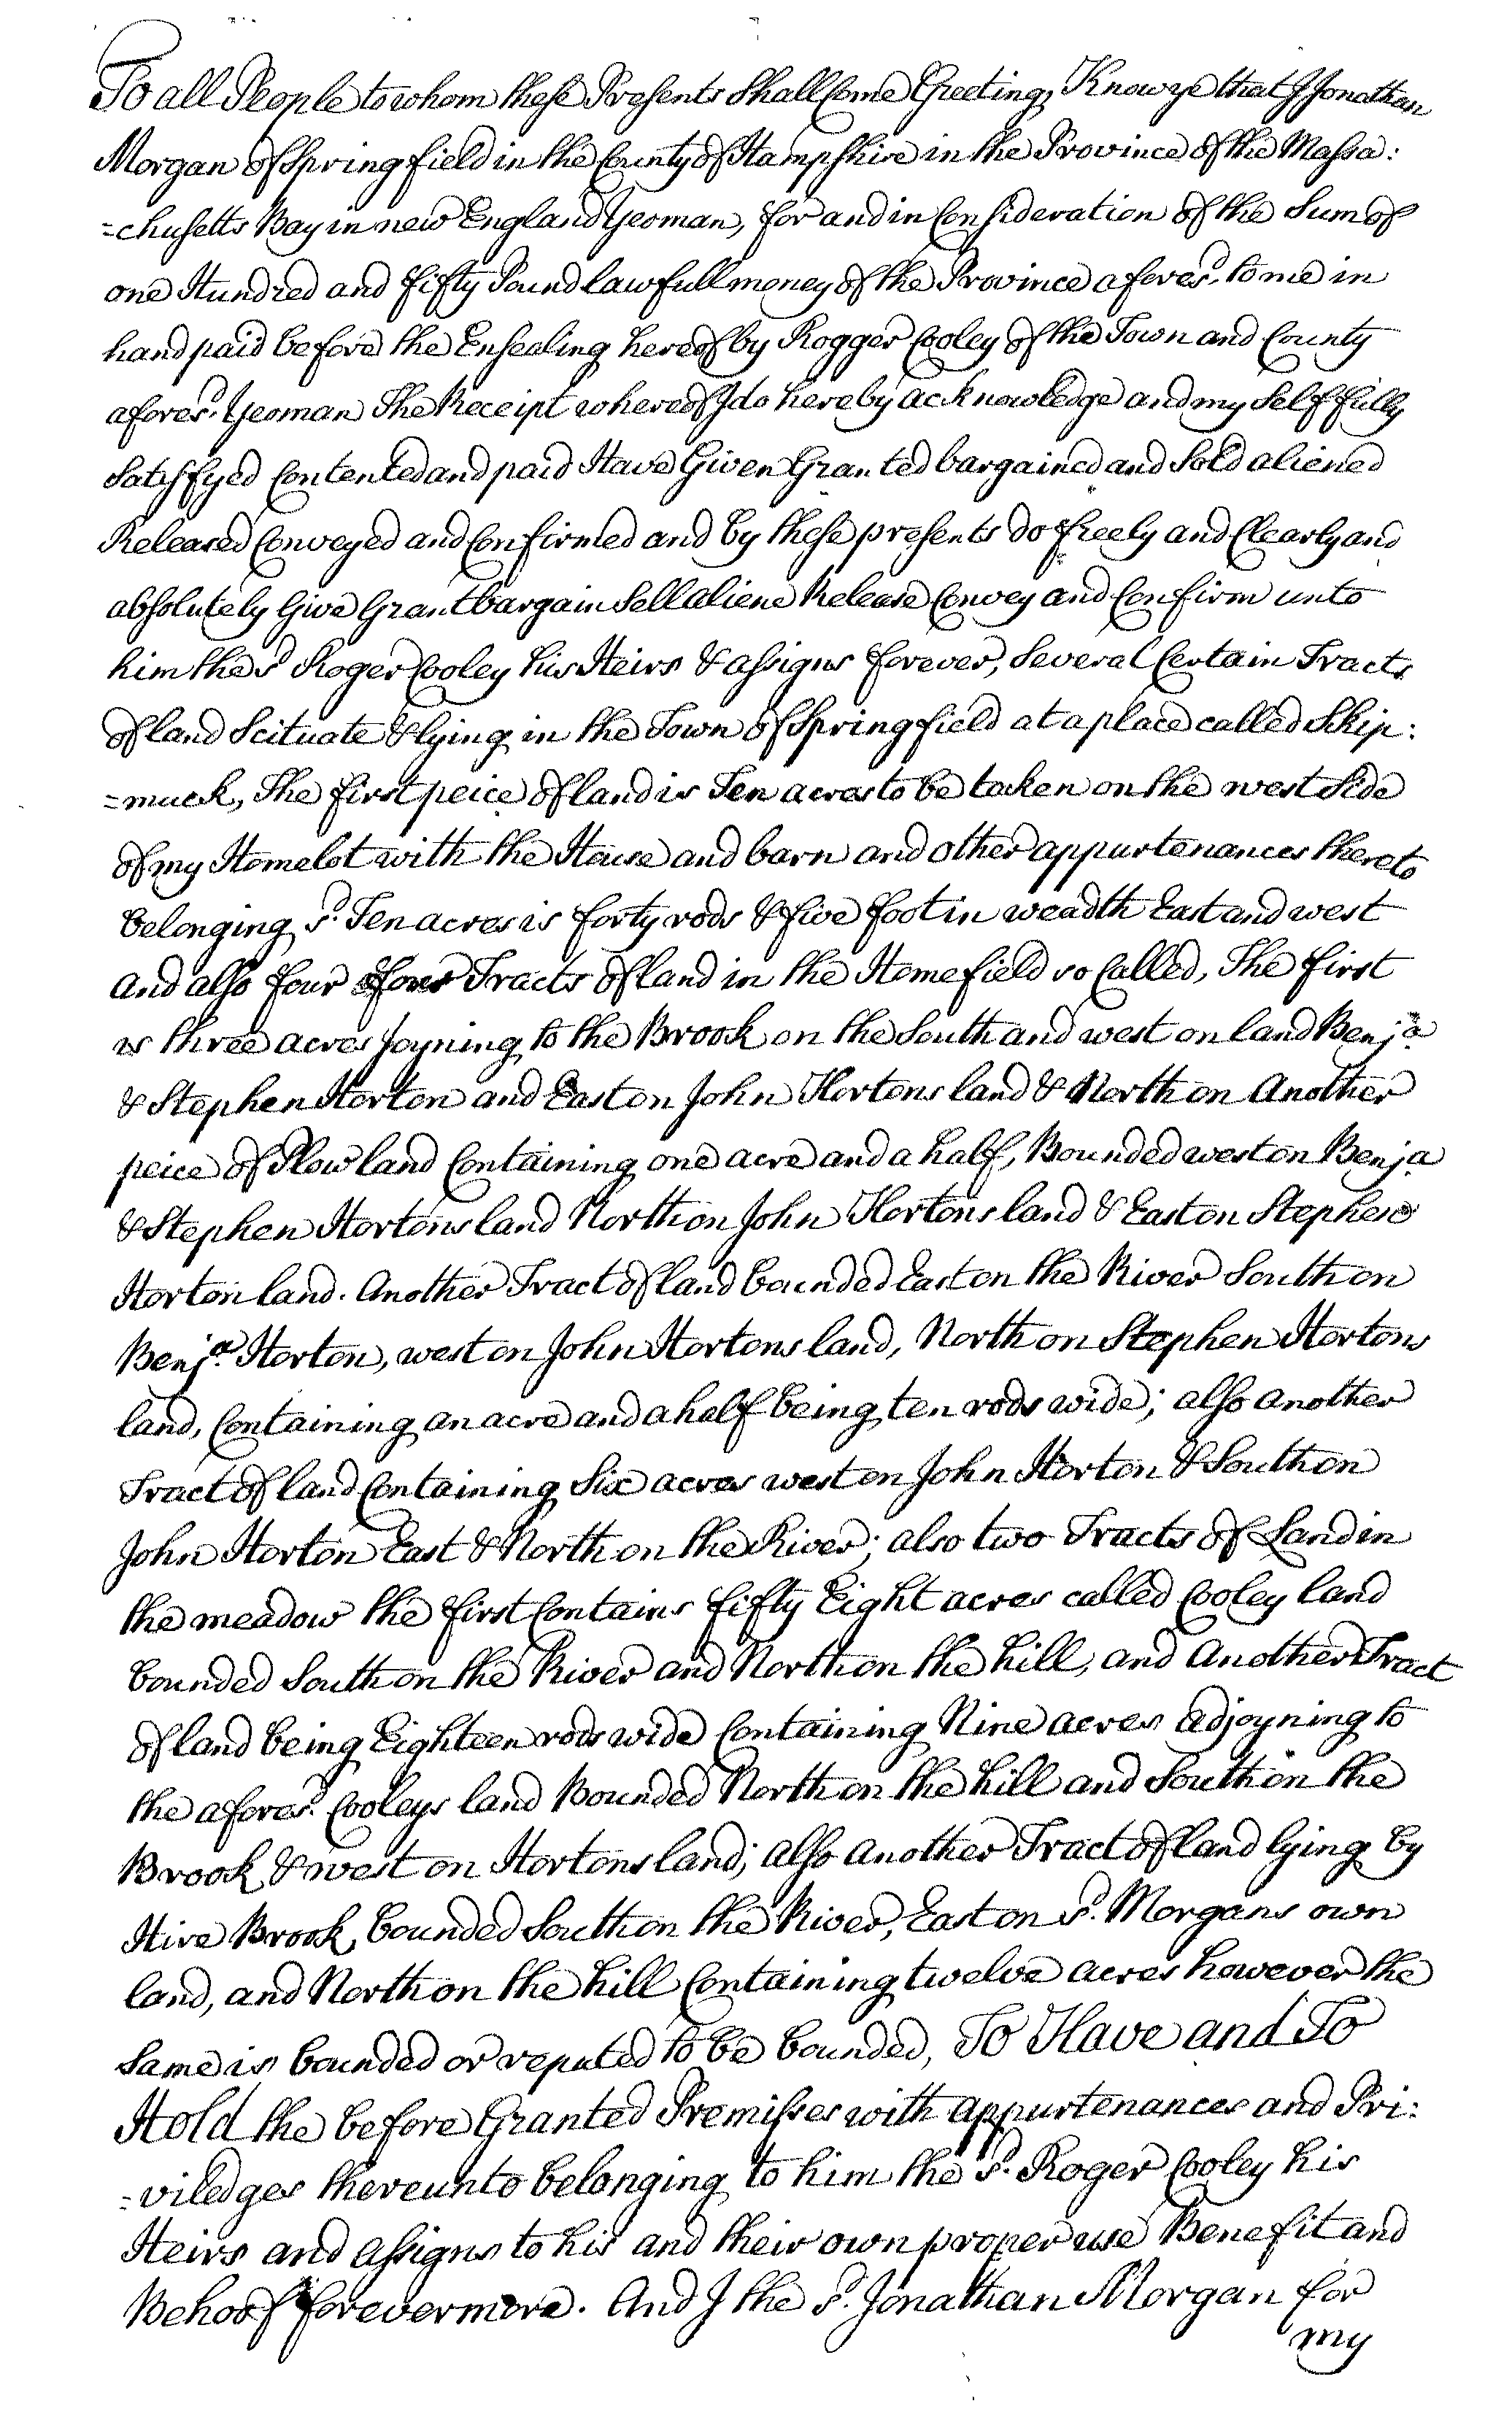 To all People to whom these Presents Shall Come Greeting, Know ye that I Jonathan
Morgan of Springfield in the County of Hampshire in the Province of the Massa:
=chusetts Bay in new England Yeoman, for and in Consideration of the Sum of
one Hundred and fifty Pound lawfull money of the Province afores.d to me in
hand paid before the Ensealing hereof by Rogger Cooley of the Town and County
afores.d Yeoman The Receipt whereof I do hereby acknowledge and my Self fully
Satisfyed Contented and paid Have Given Granted bargained and Sold aliened
Released Conveyed and Confirmed and by these presents do freely and Clearly and
absolutely Give Grant bargain Sell aliene Release Convey and Confirm unto
him the s.d Roger Cooley his Heirs & assigns forever, Several Certain Tracts
of land Scituate & lying in the Town of Springfield at a place called Skip:
=muck, The first peice of land is Ten acres to be taken on the west Side
of my Homelot with the House and barn and other appurtenances thereto
belonging s.d Ten acres is forty rods & five foot in weadth East and west
and also four of our Tracts of land in the Homefield so Called, The first
is three acres Joyning to the Brook on the South and west on land Benj.a
& Stephen Horton and East on John Hortons land & North on Another
peice of Plow land Containing one acre and a half, Bounded west on Benj.a
& Stephen Hortons land North on John Hortons land & East on Stephen
Horton land. Another Tract of land bounded East on the River South on
Benj.a Horton, west on John Hortons land, North on Stephen Hortons
land, Containing an acre and a half being ten rods wide; also another
Tract of land Containing Six acres west on John Horton & South on
John Horton East & North on the River; also two Tracts of Land in
the meadow the first Contains fifty Eight acres called Cooley land
bounded South on the River and North on the hill, and Another Tract
of land being Eighteen rods wide Containing Nine acres adjoyning to
the afores.d Cooleys land Bounded North on the hill and South on the
Brook & west on Hortons land; also another Tract of land lying by
Hive Brook, bounded South on the River, East on s.d Morgans own
land, and North on the hill Containing twelve acres however the
Same is bounded or reputed to be bounded, To Have and To
Hold the before Granted Premisses with appurtenances and Pri:
=viledges thereunto belonging to him the s.d Roger Cooley his
Heirs and assigns to his and their own proper use Benefit and
Behoof forevermore. And I the s.d Jonathan Morgan for
my